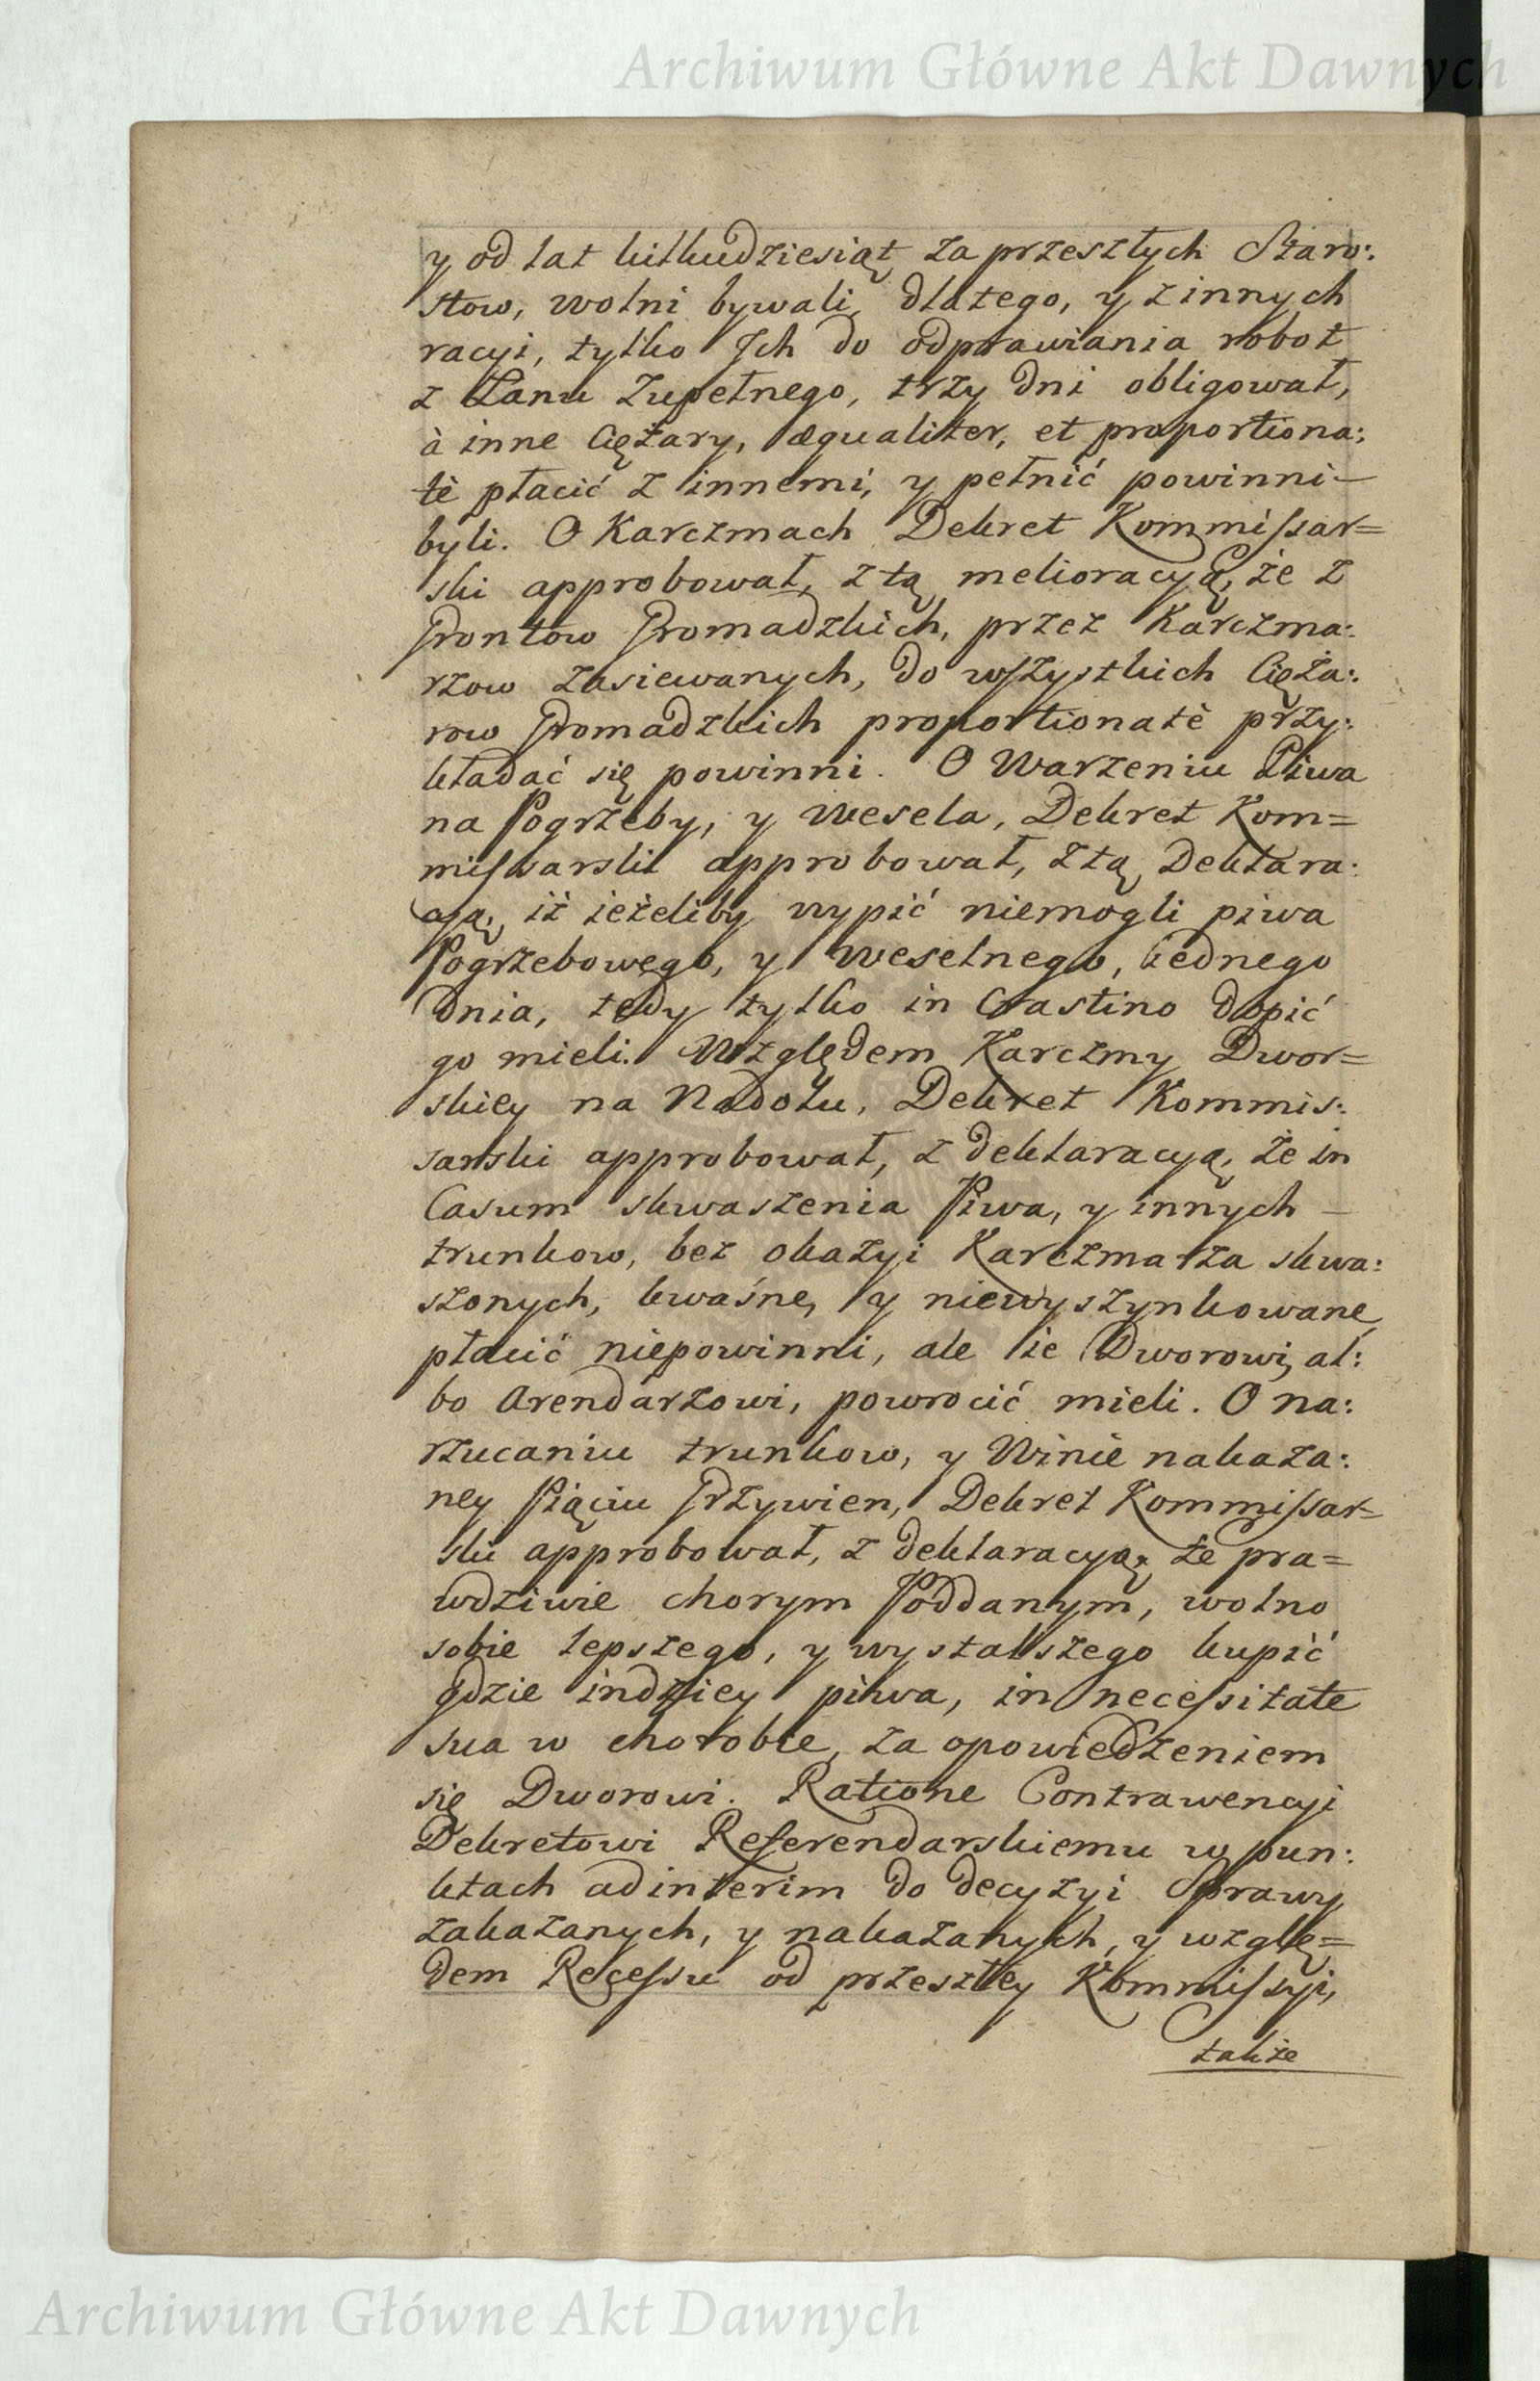 Archiwum Główne Akt Dawnych
y od lat kilkudziesiąt za przeszłych Staro:
stow, wolni bywali, dlatego, y z innych
racyi, tylko Jch do odprawiania robot
z Łanu Zupełnego, trzy dni obligował,
à inne Ciężary, æqualiter, et proportiona:
tè płacić z innemi, y pełnić powinni -
byli. O Karczmach Dekret Kommissar=
ski approbował, z tą melioracyą, że z
Grontow Gromadzkich, przez Karczma:
rzow zasiewanych, do wszystkich Cięża:
row Gromadzkich proportionatè przy:
kładać się powinni. O Warzeniu Piwa
na Pogrzeby, y Wesela, Dekret Kom=
missarski approbował, z tą Deklara:
cyą, iż ieżeliby wypić niemogli piwa
Pogrzebowego, y Weselnego, iednego
dnia, tedy tylko in Crastino dopić
go mieli. Względem Karczmy Dwor=
skiey na Nadołu, Dekret Kommis:
sarski approbował, z deklaracyą, że in
Casum skwaszenia Piwa, y innych -
trunkow, bez okazyi Karczmarza skwa:
szonych, kwaśne, y niewyszynkowane,
płacić niepowinni, ale ie Dworowi, al:
bo Arendarzowi, powrocić mieli. O na:
rzucaniu trunkow, y Winie nakaza:
ney Piąciu Grzywien, Dekret Kommissar=
ski approbował, z deklaracyą, że pra=
wdziwie chorym Poddanym, wolno
sobie lepszego, y wystalszego kupić
gdzie indziey piwa, in necessitate
sua w chorobie, za opowiedzeniem
się Dworowi. Ratione Contrawencyi
Dekretowi Referendarskiemu w pun:
ktach ad interim do decyzyi Sprawy
zakazanych, y nakazanych, y wzglę=
dem Recessu od przeszłey Kommissyi,
także
Archiwum Główne Akt Dawnych